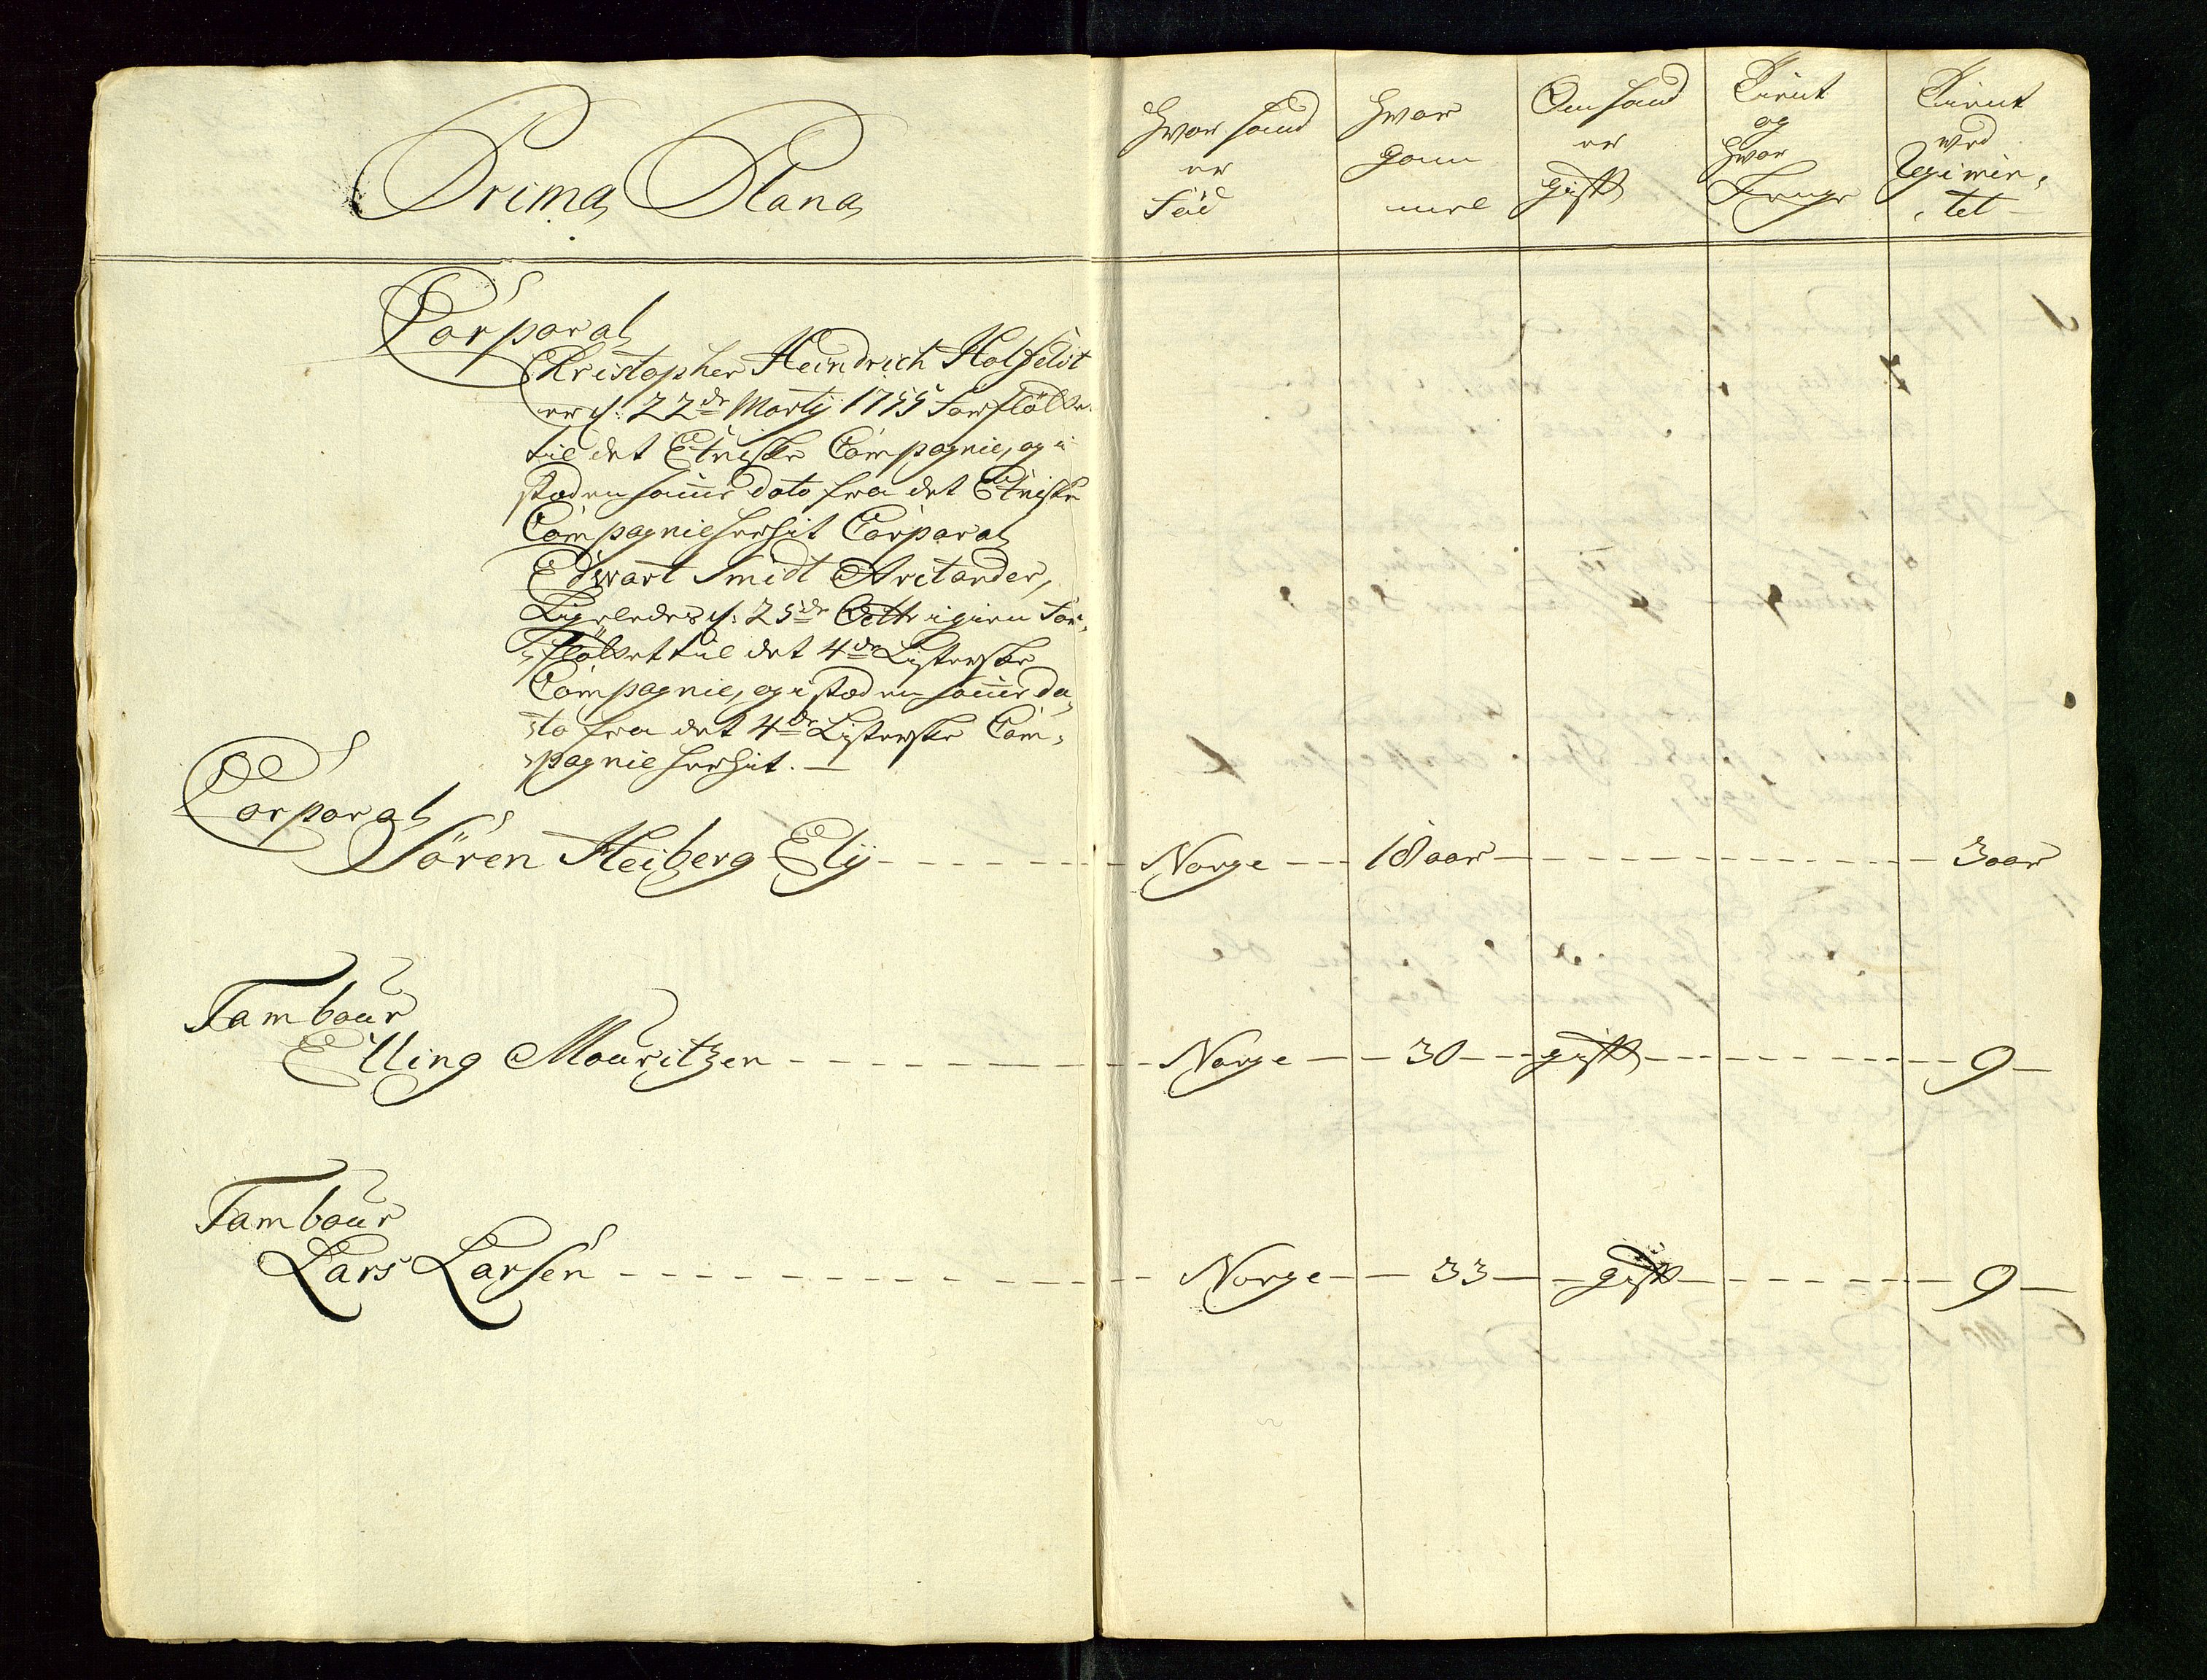 Prima Plana
Hvor hand
er
Föd
Hvor
gam
mel
Om hand
er
gift
Tient
og
hvor
Lenge
Tient
ved
Regimen,
,tet
Corporal
Christopher Heindrich Holfeldt
er d: 22de Martij 1755 forflöttet
til det Etniske Compagnie, og i
stæden samme dato fra det Etniske
Compagnie herhit Corporal
Edwart Smidt Aritander,
Ligeledes d: 25de Octbr igien for,
,flöttet til det 4de Listerske
Compagnie, og i stæden samme da,
,to fra det 4de Listerske Com,
,pagnie herhit.
Corporal
Sören Heiberg Elij - - - - Norge - - 18 aar - - - - 3 aar
Tambour
Elling Mouritzen - - - - Norge - - 30 - - gift - - - - 9 -
Tambour
Lars Larsen - - - - Norge - - 33 - - gift - - - - 9 -